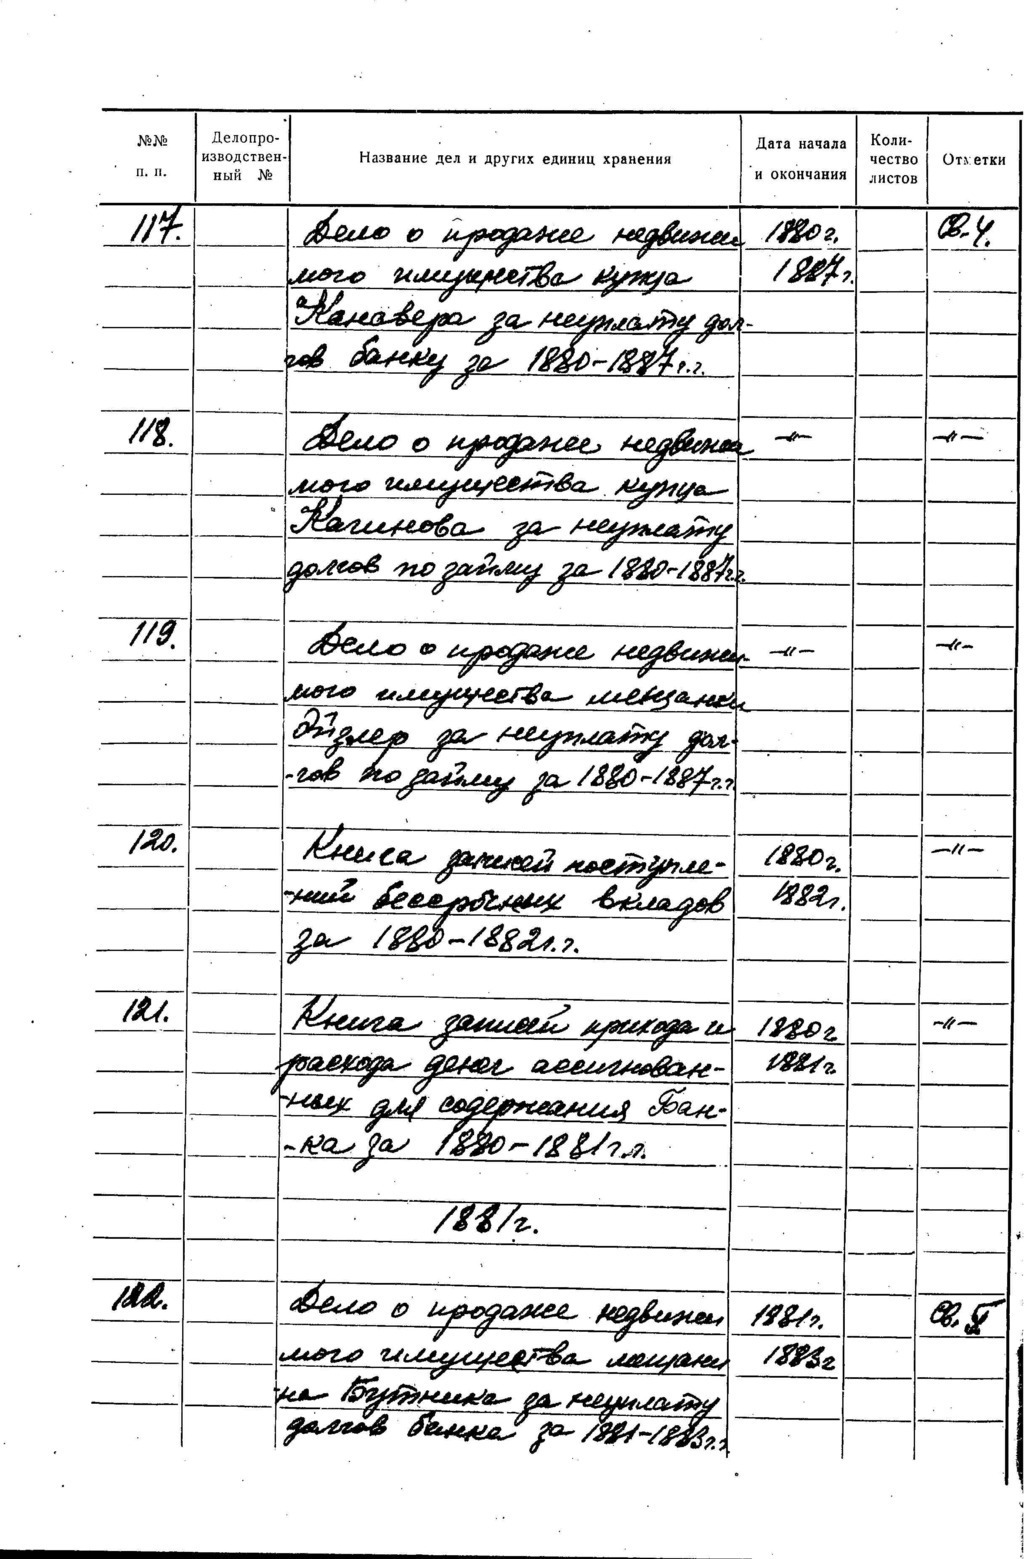 №№ п. п. Делопро-изводствен-ный № Название дел и других единиц хранения Дата начала и окончания Коли-чество листов Отметки
117. Дело о продаже недвижи 1880 г. Св. 4.
мого имущества купца 1887 г.
Канавера за неуплату дол-
гов банку за 1880-1887 г.г.
118. Дело о продаже недвижи -"- -"-
мого имущества купца
Кагинова за неуплату
долгов по займу за 1880-1887 г.г.
119. Дело о продаже недвижи- -"- -"-
мого имущества мещанки
Эйзлер за неуплату дол-
-гов по займу за 1880-1887 г.г.
120. Книга записей поступле- 1880 г. -"-
-ний бессрочных вкладов 1882 г.
за 1880-1882 г.г.
121. Книга записей прихода и 1880 г. -"-
расхода денег ассигнован- 1881 г.
-ных для содержания Бан-
-ка за 1880-1881 г.г.
1881 г.
122. Дело о продаже недвижи 1881 г. Св.
мого имущества мещани 1883 г
на Бутника за неуплату
долгов банка за 1881-1883 г.г.